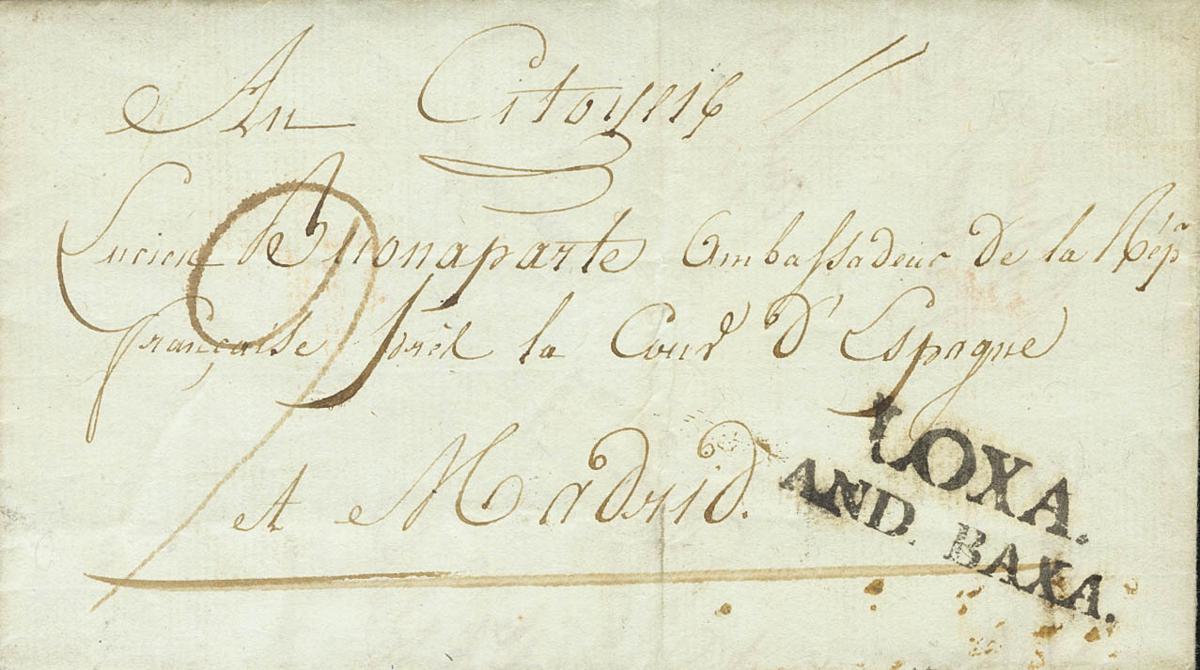 Au Citoyen
Lucien Buonaparte Ambassadeur de la Rép
française près la Cour d'Espagne
et Madrid.
LOXA.
AND. BAXA.
9